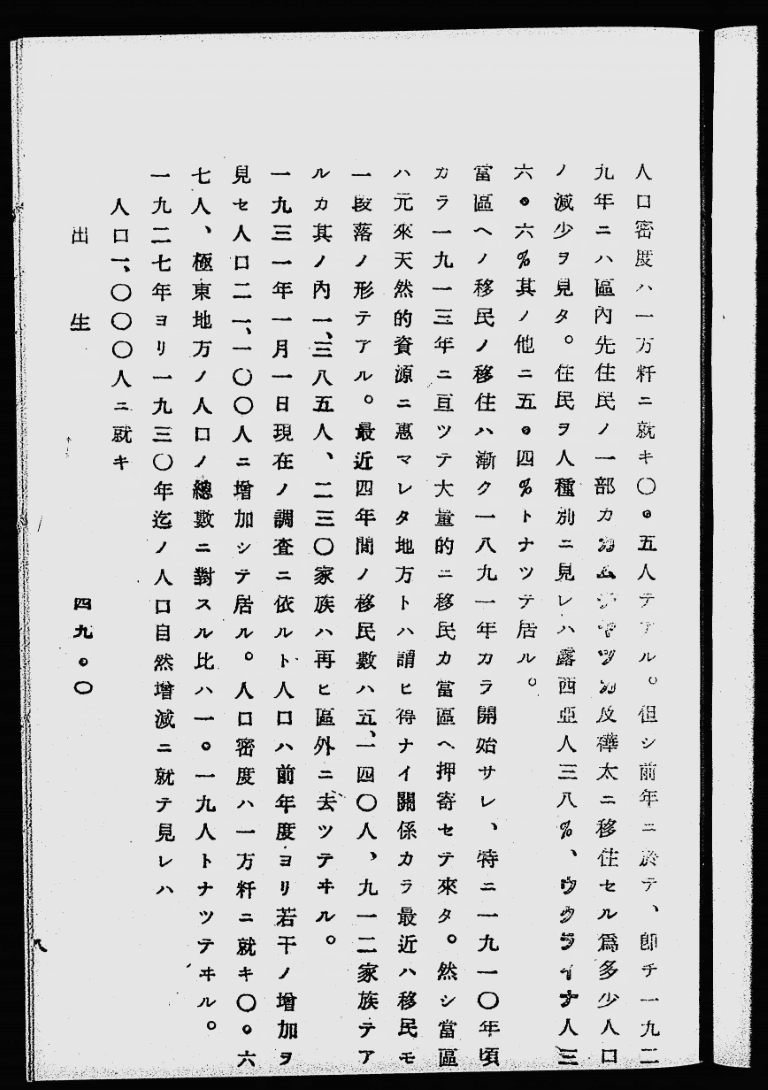 人口密度ハ一万粁ニ就キ〇。五人テアル。但シ前年ニ於テ、卽チ一九二
九年ニハ區內先住民ノ一部カカムチヤツカ及樺太ニ移住セル爲多少人口
ノ減少ヲ見タ。住民ヲ人種別ニ見レハ露西亞人三八%、ウクライナ人三
六。六%其ノ他ニ五。四%トナツテ居ル。
當區ヘノ移民ノ移住ハ漸ク一八九一年カラ開始サレ、特ニ一九一〇年頃
カラ一九一三年ニ亘ツテ大量的ニ移民カ當區ヘ押寄セテ來タ。然シ當區
ハ元來天然的資源ニ惠マレタ地方トハ謂ヒ得ナイ關係カラ最近ハ移民モ
一段落ノ形テアル。最近四年間ノ移民數ハ五、一四〇人、九一二家族テア
ルカ其ノ內一、三八五人、二三〇家族ハ再ヒ區外ニ去ツテヰル。
一九三一年一月一日現在ノ調査ニ依ルト人口ハ前年度ヨリ若干ノ增加ヲ
見セ人口二一、一〇〇人ニ增加シテ居ル。人口密度ハ一万粁ニ就キ〇。六
七人、極東地方ノ人口ノ總數ニ對スル比ハ一。一九人トナツテヰル。
一九二七年ヨリ一九三〇年迄ノ人口自然增減ニ就テ見レハ
人口一、〇〇〇人ニ就キ
出生 四九。〇
八